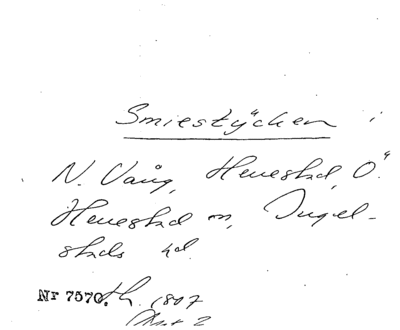 Smiestycken i
N. Vång, Henestad, Ö.
Henestad m, Ingel-
stads hd.
Nr 7570. th. 1807